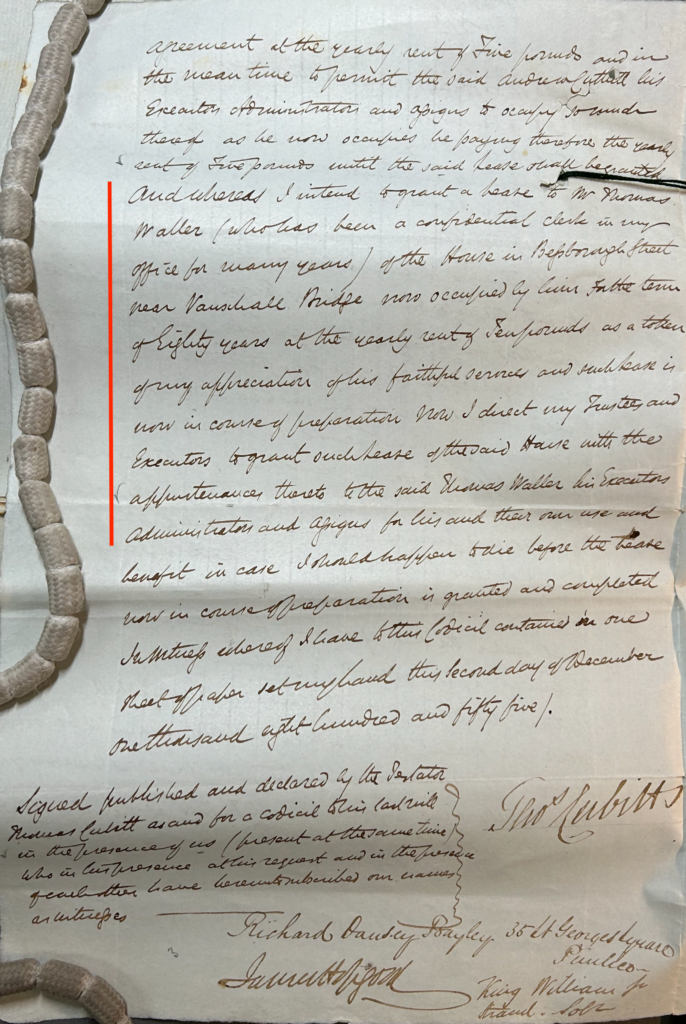 agreement at the yearly rent of Five pounds and in
the mean time to permit the said Andrew Cuthell his
Executors Administrators and assigns to occupy so much
thereof as he now occupies he paying therefore the yearly
rent of Five pounds until the said Lease shall be granted
And whereas I intend to grant a Lease to Mr Thomas
Waller (who has been a confidential clerk in my
office for many years) of the House in Bessborough Street
near Vauxhall Bridge now occupied by him for the term
of Eighty years at the yearly rent of Ten pounds as a token
of my appreciation of his faithful services and such Lease is
now in course of preparation Now I direct my Trustees and
Executors to grant such Lease of the said House with the
appurtenances thereto to the said Thomas Waller his Executors
Administrators and assigns for his and their own use and
benefit in case I should happen to die before the Lease
now in course of preparation is granted and completed
In Witness whereof I have to this Codicil contained in one
sheet of paper set my hand this second day of December
one thousand eight hundred and fifty five /.
Signed published and declared by the Testator
Thomas Cubitt as and for a codicil to his last will
in the presence of us (present at the same time)
who in his presence at his request and in the presence
of each other have hereunto subscribed our names
as witnesses
Thos Cubitt
Richard Dansey Bayley 35 St Georges Square
Pimlico
James Hopgood
King William St
Strand. Solr